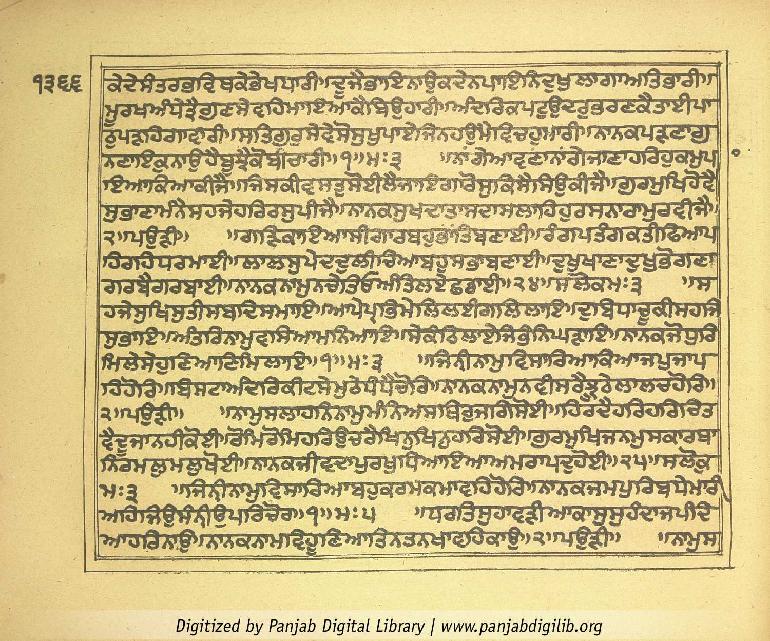 ੧੩੬੬
ਕੇਦੇਸੰਤਰਭਵਿਥਕੇਭੇਖਧਾਰੀ॥ਦੂਜੈਭਾਇਨਾਉਕਦੇਨਪਾਇਨਿਦੁਖੁਲਾਗਾਅਤਿਭਾਰੀ॥
ਮੂਰਖਅੰਧੇਤ੍ਰੈਗੁਣਸੇਵਹਿਮਾਇਆਕੈਬਿਉਹਾਰੀ॥ਅੰਦਰਿਕਪਟੁਉਦਰੁਭਰਣਕੈਤਾਈਪਾ
ਠਪੜਹਿਗਾਵਾਰੀ॥ਸਤਿਗੁਰੁਸੇਵੇਸੋਸੁਖੁਪਾਏਜਿਨਹਉਮੈਵਿਚਹੁਮਾਰੀ॥ਨਾਨਕਪੜਣਾਗੁ
ਨਣਾਇਕੁਨਾਉਹੈਬੂਝੈਕੋਬੀਚਾਰੀ॥੧॥ਮਃ੩ ॥ਨਾਂਗੇਆਵਣਾਨਾਂਗੇਜਾਣਾਹਰਿਹੁਕਮੁਪ
ਾਇਆਕਿਆਕੀਜੈ॥ਜਿਸਕੀਵਸਤੁਸੋਈਲੈਜਾਇਗਾਰੋਸੁਕਿਸੈਸਿਉਕੀਜੈ॥ਗੁਰਮੁਖਿਹੋਵੈ
ਸੁਭਾਣਾਮੰਨੇਸਹਜੇਹਰਿਰਸੁਪੀਜੈ॥ਨਾਨਕਸੁਖਦਾਤਾਸਦਾਸਲਾਹਿਹੁਰਸਨਾਰਾਮੁਰਵੀਜੈ॥
੨॥ਪਉੜੀ॥ ॥ਗੜਿਕਾਇਆਸੀਗਾਰਬਹੁਭਾਂਤਿਬਣਾਈ॥ਰੰਗਪਰੰਗਕਤੀਫਿਆਪ
ਹਿਰਹਿਧਰਮਾਈ॥ਲਾਲਸੁਪੇਦਦੁਲੀਚਿਆਬਹੁਸਭਾਬਣਾਈ॥ਦੁਖੁਖਾਣਾਦੁਖੁਭੋਗਣਾ
ਗਰਬੈਗਰਬਾਈ॥ਨਾਨਕਨਾਮੁਨਚੇਤਿਓਅੰਤਿਲਏਛਡਾਈ॥੨੪॥ਸਲੋਕਮਃ੩ ॥ਸ
ਹਜੇਸੁਖਿਸੁਤੀਸਬਦਿਸਮਾਇ॥ਆਪੇਪ੍ਰਭਿਮੇਲਿਲਈਗਲਿਲਾਇ॥ਦੁਬਿਧਾਚੂਕੀਸਹਜਿ
ਸੁਭਾਇ॥ਅੰਤਰਿਨਾਮੁਵਸਿਆਮਨਿਆਇ॥ਸੇਕੰਠਿਲਾਏਜਿਭੰਨਿਘੜਾਇ॥ਨਾਨਕਜੋਧੁਰਿ
ਮਿਲੇਸੇਹੁਣਿਆਣਿਮਿਲਾਇ॥੧॥ਮਃ੩ ॥ਜਿਨੀਨਾਮੁਵਿਸਾਰਿਆਕਿਆਜਪੁਜਾਪ
ਹਿਹੋਰਿ॥ਬਿਸਟਾਅੰਦਰਿਕੀਟਸੇਮੁਠੇਧੰਧੈਚੋਰਿ॥ਨਾਨਕਨਾਮੁਨਵੀਸਰੈਝੂਠੇਲਾਲਚਹੋਰਿ॥
੨॥ਪਉੜੀ॥ ॥ਨਾਮੁਸਲਾਹਨਿਨਾਮੁਮੰਨਿਅਸਥਿਰੁਜਗਿਸੋਈ॥ਹਿਰਦੈਹਰਿਹਰਿਚਿਤ
ਵੈਦੂਜਾਨਹੀਕੋਈ॥ਰੋਮਿਰੋਮਿਹਰਿਉਚਰੈਖਿਨੁਖਿਨੁਹਰਿਸੋਈ॥ਗੁਰਮੁਖਿਜਨਮੁਸਕਾਰਥਾ
ਨਿਰਮਲੁਮਲੁਖੋਈ॥ਨਾਨਕਜੀਵਦਾਪੁਰਖੁਧਿਆਇਆਅਮਰਾਪਦੁਹੋਈ॥੨੫॥ਸਲੋਕੁ
ਮਃ੩ ॥ਜਿਨੀਨਾਮੁਵਿਸਾਰਿਆਬਹੁਕਰਮਕਮਾਵਹਿਹੋਰਿ॥ਨਾਨਕਜਮਪੁਰਿਬਧੇਮਾਰੀ
ਅਹਿਜਿਉਸੰਨੀਉਪਰਿਚੋਰ॥੧॥ਮਃ੫ ॥ਧਰਤਿਸੁਹਾਵੜੀਆਕਾਸੁਸੁਹੰਦਾਜਪੰਦਿ
ਆਹਰਿਨਾਉ॥ਨਾਨਕਨਾਮਵਿਹੂਣਿਆਤਿਨਤਨਖਾਵਹਿਕਾਉ॥੨॥ਪਉੜੀ॥ ॥ਨਾਮੁਸ
Digitized by Panjab Digital Library | www.panjabdigilib.org